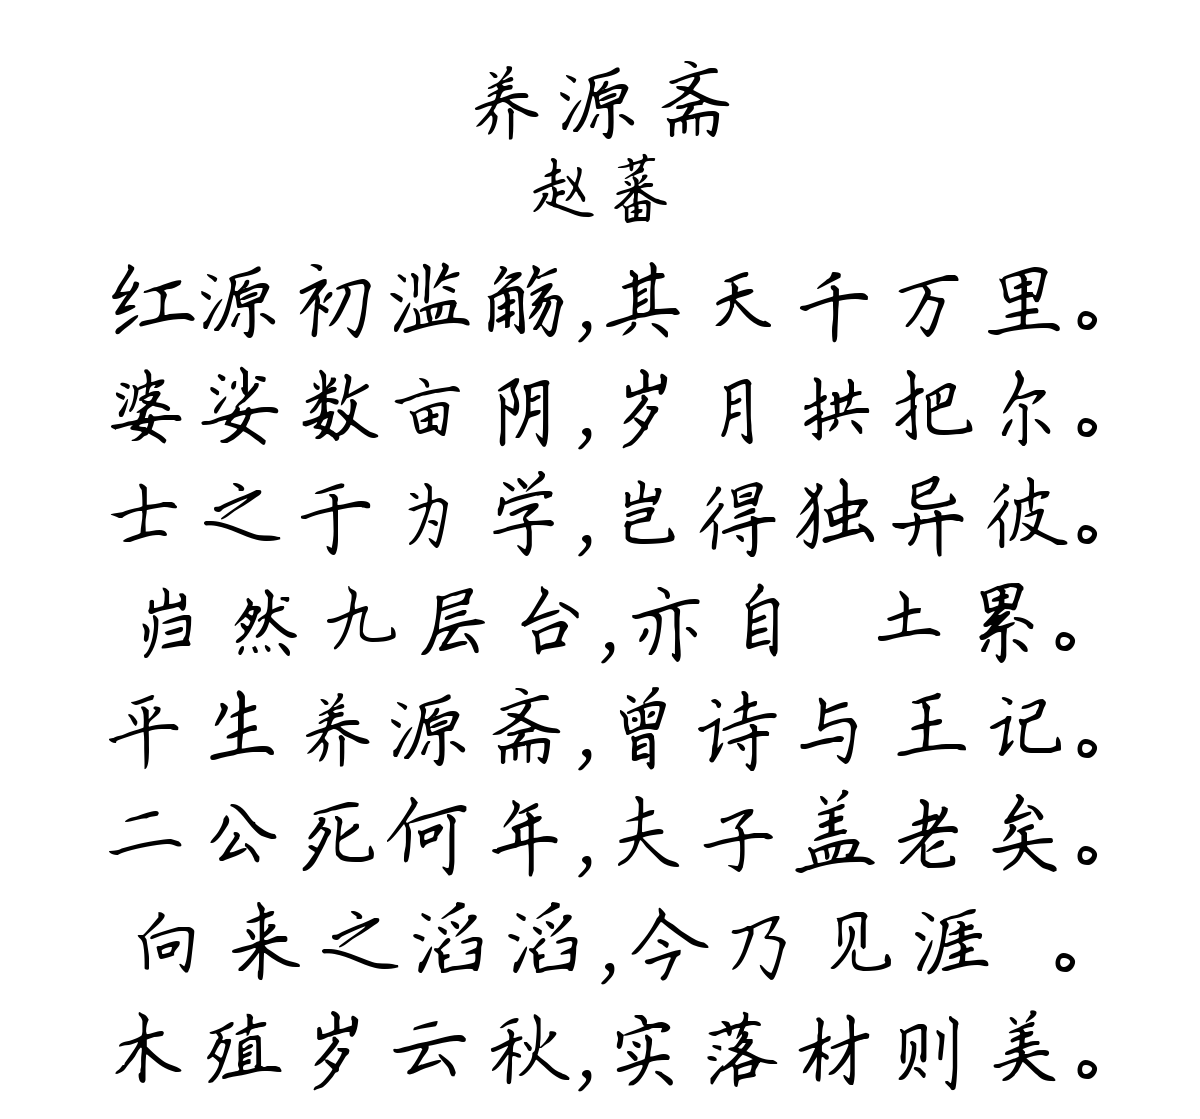 养源斋
赵蕃
红源初滥觞,其天千万里。
婆娑数亩阴,岁月拱把尔。
士之于为学,岂得独异彼。
岿然九层台,亦自 土累。
平生养源斋,曾诗与王记。
二公死何年,夫子盖老矣。
向来之滔滔,今乃见涯 。
木殖岁云秋,实落材则美。